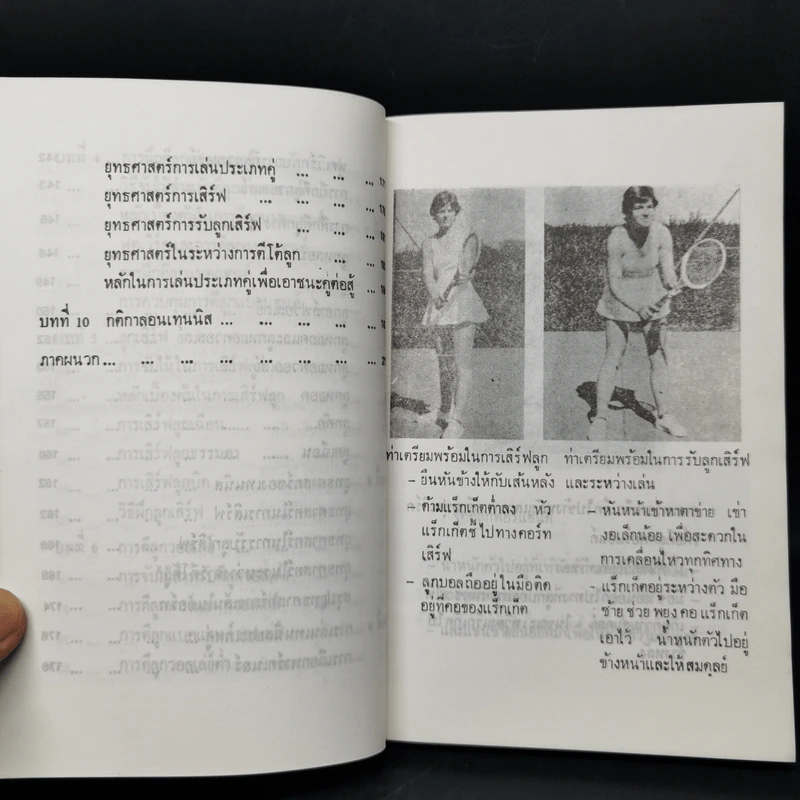 ยุทธศาสตร์การเล่นประเภทคู่ ... ... ...
ยุทธศาสตร์การเสิร์ฟ ... ... ...
ยุทธศาสตร์การรับลูกเสิร์ฟ ... ...
ยุทธศาสตร์ในระหว่างการตีโต้ลูก ... ...
หลักในการเล่นประเภทคู่เพื่อเอาชนะคู่ต่อสู้ ...
บทที่ 10 กติกาลอนเทนนิส ... ... ... ... ...
ภาคผนวก ... ... ... ... ... ... ...
ท่าเตรียมพร้อมในการเสิร์ฟลูก
– ยืนหันข้างให้กับเส้นหลัง
– ด้ามแร็กเก็ตต่ำลง หัว
แร็กเก็ตชี้ไปทางคอร์ท
เสิร์ฟ
– ลูกบอลถืออยู่ในมือติด
อยู่ที่คอของแร็กเก็ต
ท่าเตรียมพร้อมในการรับลูกเสิร์ฟ
และระหว่างเล่น
– หันหน้าเข้าหาตาข่าย เข่า
งอเล็กน้อย เพื่อสะดวกใน
การเคลื่อนไหวทุกทิศทาง
– แร็กเก็ตอยู่ระหว่างตัว มือ
ซ้าย ช่วย พยุง คอ แร็กเก็ต
เอาไว้ น้ำหนักตัวไปอยู่
ข้างหน้าและให้สมดุลย์